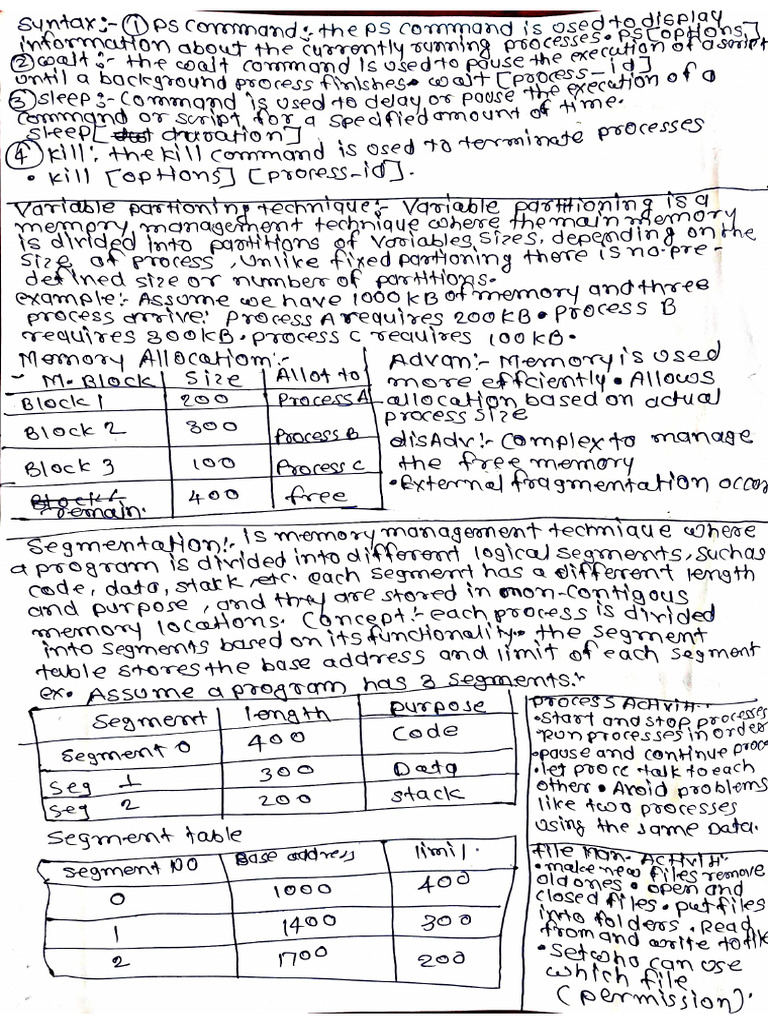 Syntax:- ① PS command:- the PS command is used to display
information about the currently running processes. PS [options]
② wait:- the wait command is used to pause the execution of a script
until a background process finishes. wait [process-id]
③ sleep:- command is used to delay or pause the execution of a
command or script, for a specified amount of time.
sleep [duration]
④ kill:- the kill command is used to terminate processes
• kill [options] [process-id].
Variable partioning technique:- Variable partitioning is a
memory management technique where the main memory
is divided into partitions of variables sizes, depending on the
size of process, unlike fixed partioning there is no pre-
defined size or number of partitions.
example:- Assume we have 1000 KB of memory and three
process arrive: Process A requires 200 KB. Process B
requires 300 KB. process C requires 100 KB.
Memory Allocation:-
M. Block Size Allot to
Block 1 200 Process A
Block 2 300 Process B
Block 3 100 Process C
remain. 400 free
Advan:- Memory is used
more effciently. Allows
allocation based on actual
process size
disAdv:- Complex to manage
the free memory
• External fragmentation occur
Segmentation:- is memory management technique where
a program is divided into different logical segments, such as
code, data, stack etc. each segment has a different length
and purpose, and they are stored in non-contigous
memory locations. Concept:- each process is divided
into segments based on its functionality. the segment
table stores the base address and limit of each segment
ex. Assume a program has 3 segments:-
Segment length purpose
Segment 0 400 Code
Seg 1 300 Data
Seg 2 200 stack
Segment table
Segment NO Base address limit.
0 1000 400
1 1400 300
2 1700 200
process Activit:-
• Start and stop processes
• Run processes in order
• pause and continue proce
• let proce talk to each
other • Avoid problems
like two processes
using the same Data.
file Man. Activit:-
• make new files remove
old ones • open and
closed files • put files
into folders • Read
from and write to file
• Set who can use
which file
(permission).